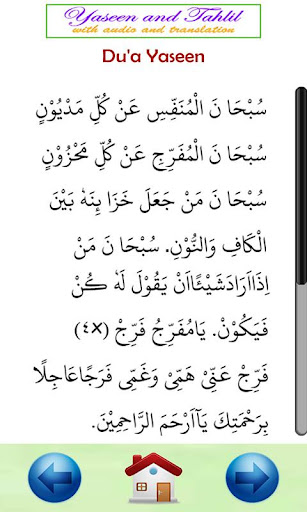 Yaseen and Tahlil
with audio and translation
Du'a Yaseen
سُبْحَا نَ الْمُنَفِّسِ عَنْ كُلِّ مَدْيُوْنٍ
سُبْحَا نَ الْمُفَرِّجِ عَنْ كُلِّ مَحْزُوْنٍ
سُبْحَا نَ مَنْ جَعَلَ خَزَا ئِنَهٗ بَيْنَ
الْكَافِ وَالنُّوْنِ. سُبْحَا نَ مَنْ
اِذَاَارَادَشَيْئًااَنْ يَقُوْلَ لَهٗ كُنْ
فَيَكُوْنْ. يَامُفَرِّجُ فَرِّجْ (٤×)
فَرِّجْ عَنِّيْ هَمِّيْ وَغَمِّيْ فَرَجًاعَاجِلًا
بِرَحْمَتِكَ يَآاَرْحَمَ الرَّاحِمِيْنَ.